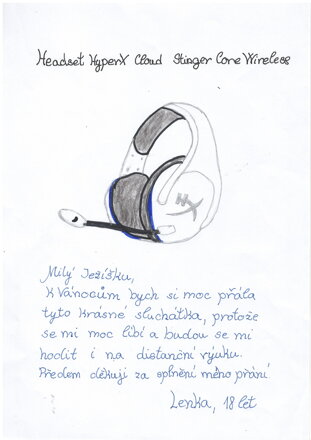 Headset HyperX Cloud Stinger Core Wireless
HX
Milý Ježíšku,
k Vánocům bych si moc přála
tyto krásné sluchátka, protože
se mi moc líbí a budou se mi
hodit i na distanční výuku.
Předem děkuji za splnění mého přání
Lenka, 18 let